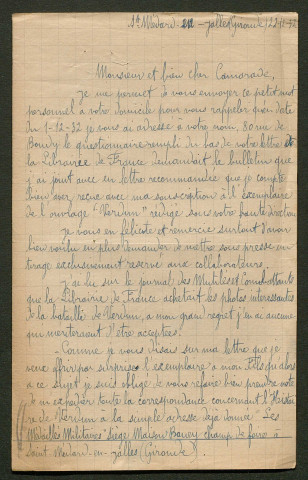 St Médard en Jalles (Gironde) 22-12-32
Monsieur et bien cher Camarade,
Je me permet de vous envoyer ce petit mot
personnel à votre domicile pour vous rappeler qu'en date
du 1-12-32 je vous ai adressé à votre nom, 80 rue de
Bondy le questionnaire rempli du bas de votre lettre et
la Librairie de France demandait le bulletins que
j'ai joint avec en lettre recommandée que je compte
bien avoir reçue avec ma souscription à l'exemplaire
de l'ouvrage "Verdun" rédigé sous votre haute direction
Je vous en félicite et remercie surtout d'avoir
bien voulu en plus demander de mettre sous presse un
tirage exclusivement réservé aux collaborateurs.
J'ai lu sur le journal des Mutilés et Combattants
que la Librairie de France achetait les photos intéressantes
de la bataille de Verdun, à mon grand regret j'en ai aucune
qui mériteraient d'être acceptées.
- Comme je vous disais sur ma lettre que je
veux offrir par surprise l'exemplaire à mon fils qu'alors
à ce sujet je suis obligé de vous refaire bien prendre note
de m'expédier toute la correspondance concernant l'Histoi
re de Verdun à la simple adresse déjà donnée "Les
Médaillés Militaires" siège Maison Bouey champ de foire à
Saint Médard-en-Jalles (Gironde).